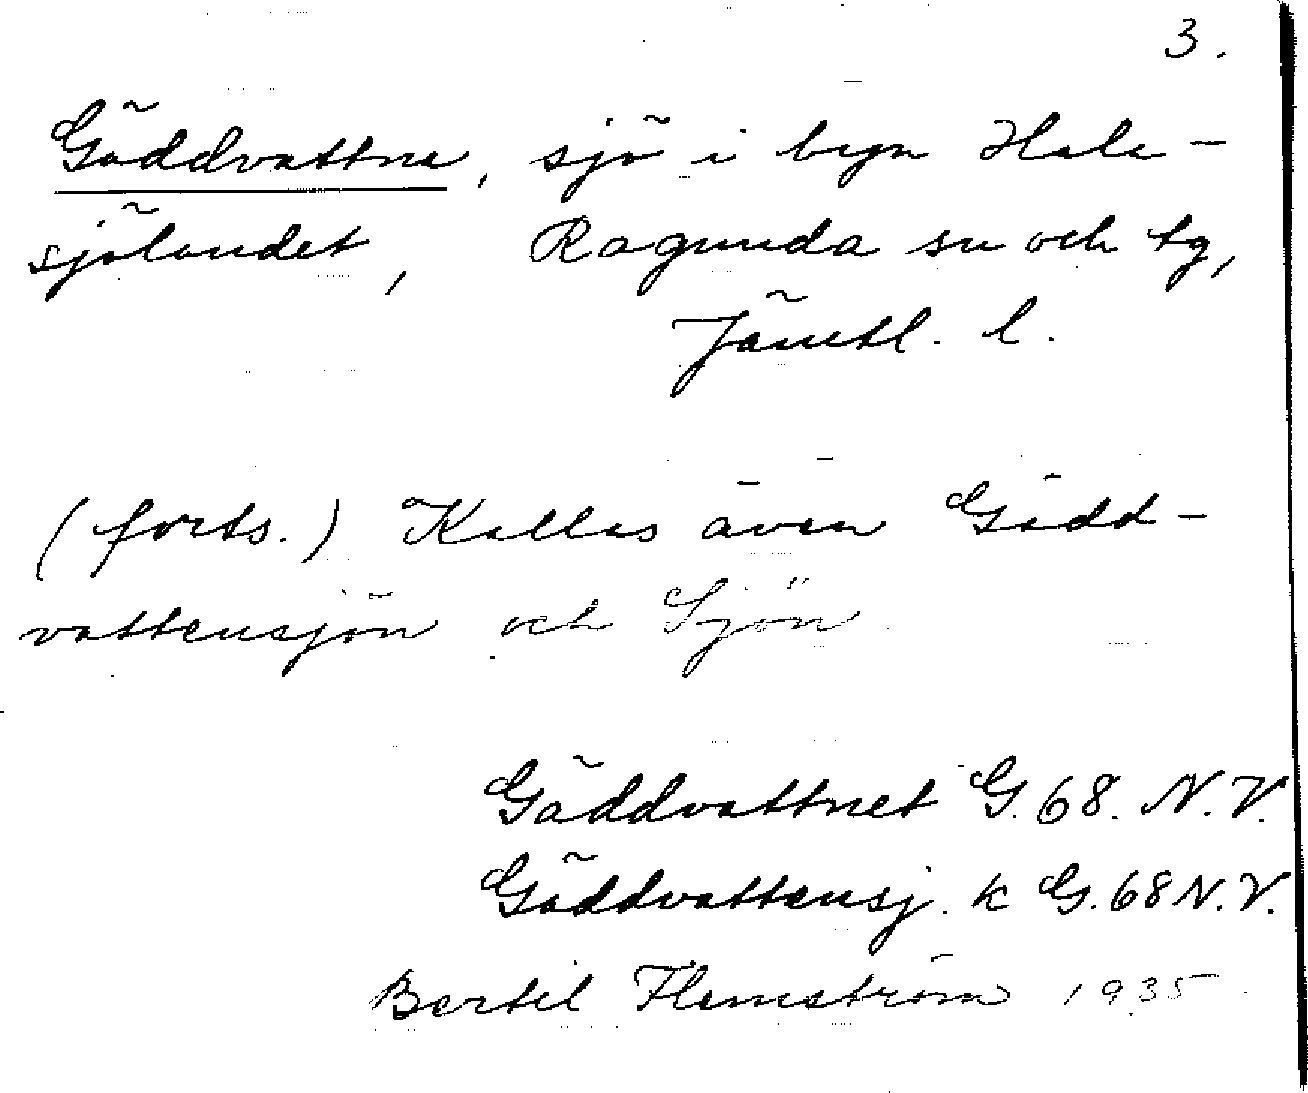 3.
Gäddvattne, sjö i byn Hale-
sjölandet, Ragunda sn och tg,
Jämtl. l.
(forts.) Kallas även Gädd-
vattensjön och Sjön
Gäddvattnet G. 68. N.V.
Gäddvattensj. k G. 68 N.V.
Bertil Flemström 1935